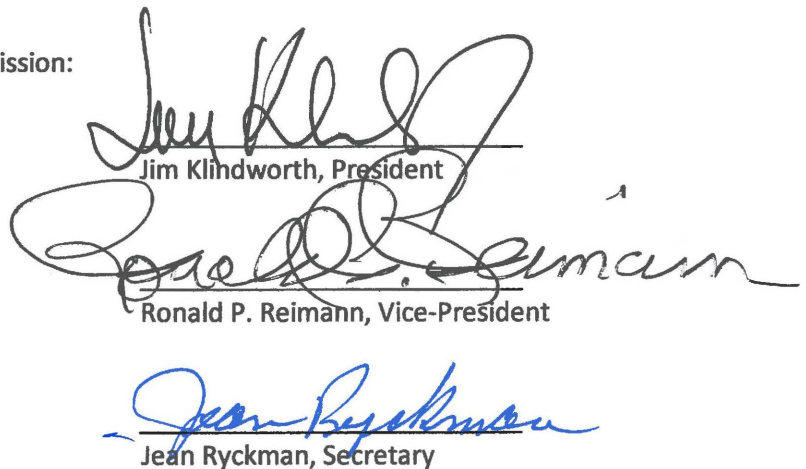 ission:
Jim Klindworth, President
Ronald P. Reimann
Ronald P. Reimann, Vice-President
Jean Ryckman
Jean Ryckman, Secretary